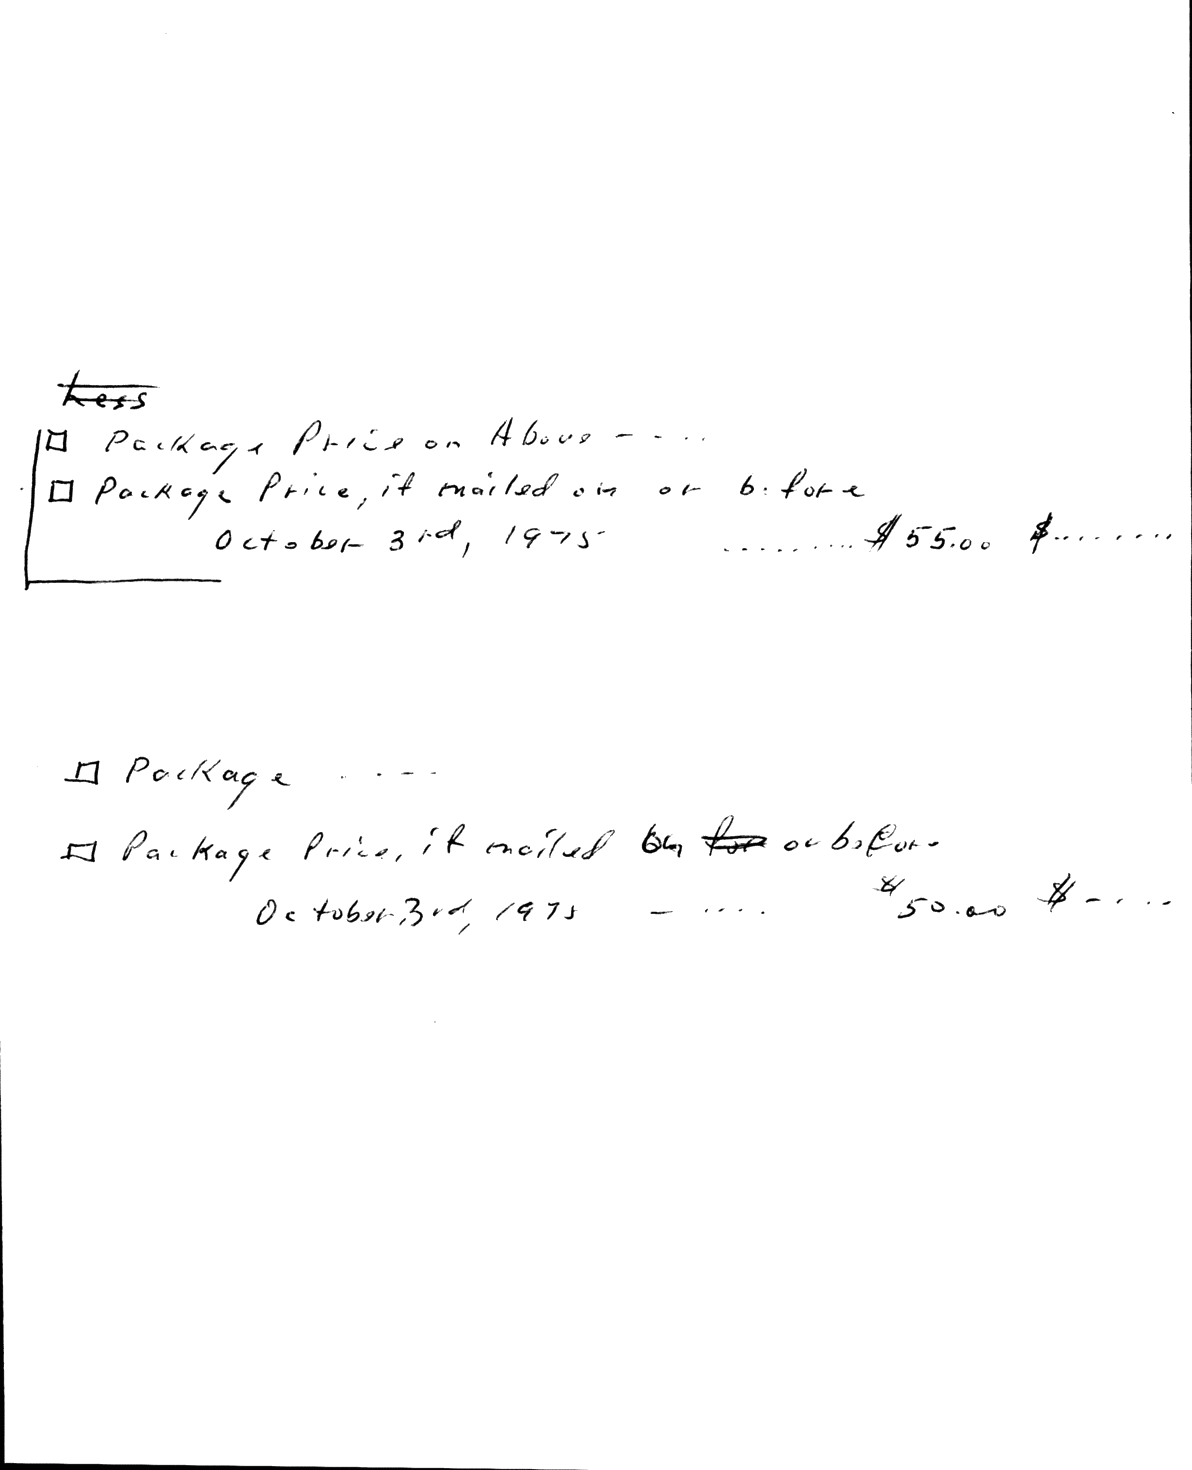 Less
□ Package Price on Above - - . . .
□ Package Price, if mailed on or before
October 3rd, 1975 .......... $55.00 $........
□ Package . . - -
□ Package Price, if mailed on for or before
October 3rd, 1975 - .... $50.00 $ - . . . .